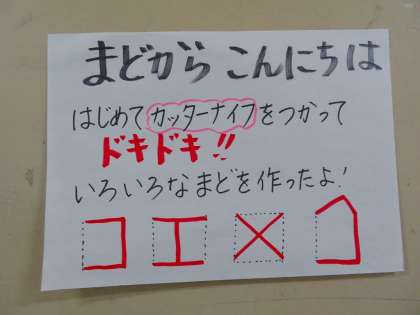 まどから こんにちは
はじめてカッターナイフをつかって
ドキドキ!!
いろいろなまどを作ったよ!